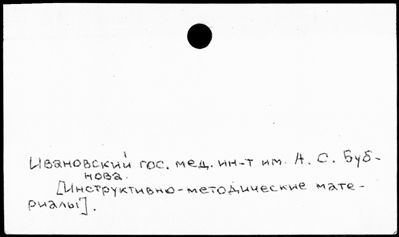 Ивановский гос. мед. ин-т им. А. С. Буб-
нова.
[Инструктивно-методические мате-
риалы].